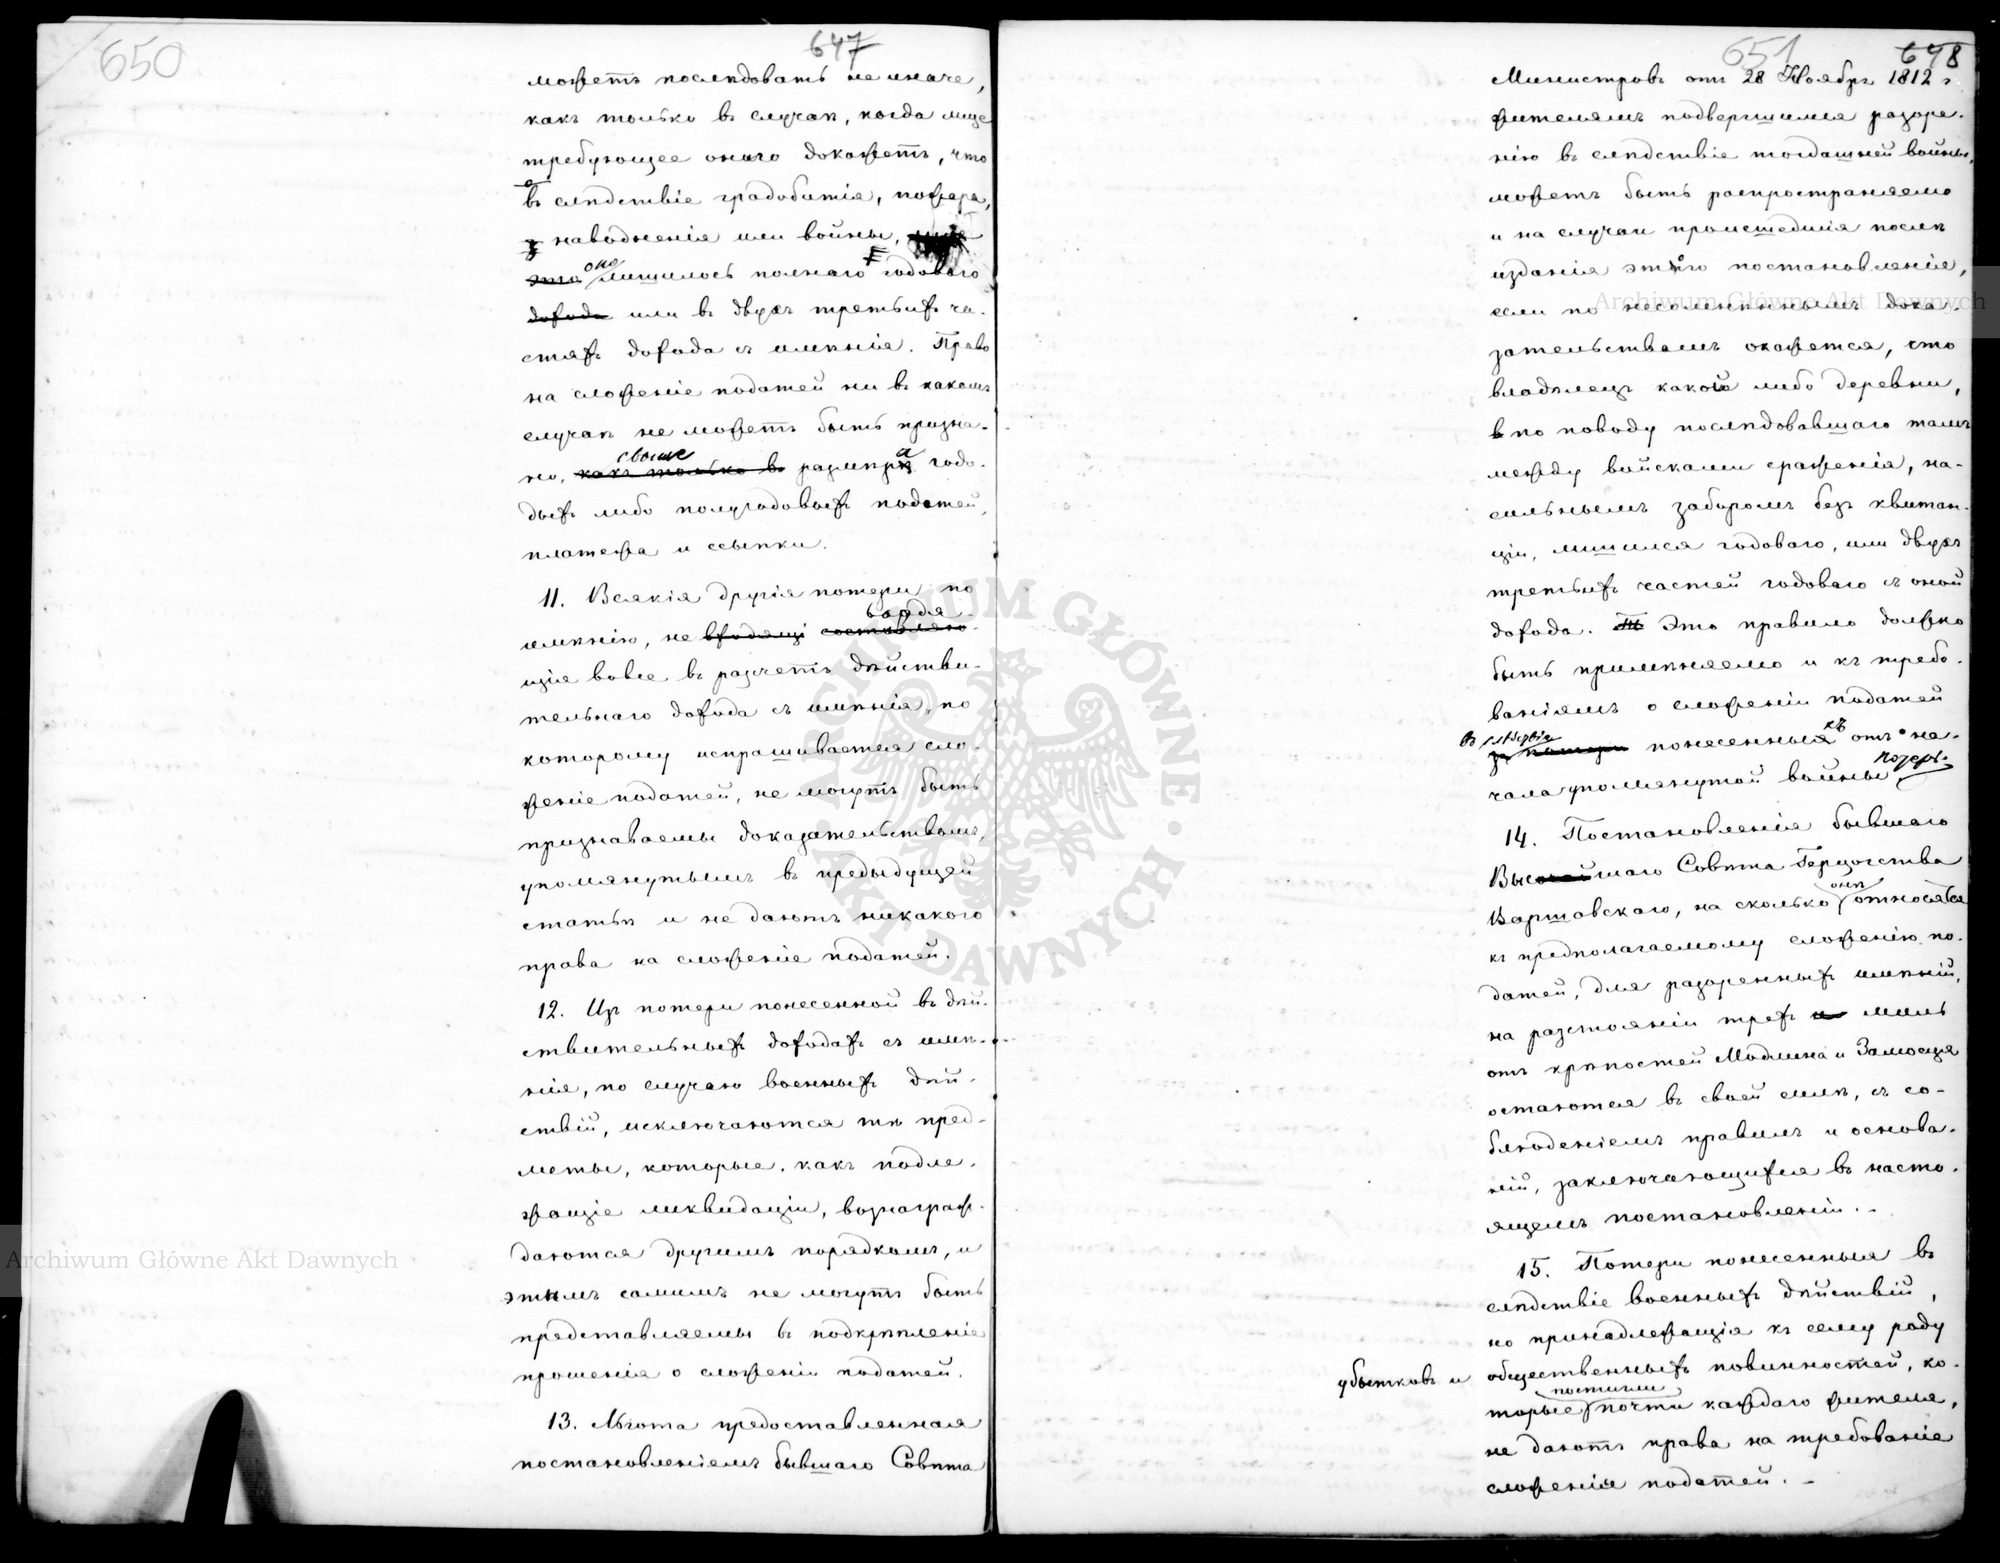 650
647
можетъ послѣдовать не иначе,
какъ только въ случаѣ, когда лице
требующее онаго докажетъ, что
въ слѣдствіе градобитія, пожара,
наводненія или войны,
это оно лишилось полнаго годоваго
дохода или въ двухъ третьихъ ча-
стяхъ дохода съ имѣнія. Право
на сложеніе податей ни въ какомъ
случаѣ не можетъ быть призна-
свыше
но, какъ только въ размѣра годо-
выхъ либо полугодовыхъ податей,
платежа и ссыпки.
11. Всякія другія потери по
входя
имѣнію, не входящі составляю-
щія вовсе въ разчетъ дѣйстви-
тельнаго дохода съ имѣнія, по
которому испрашивается сло-
женіе податей, не могутъ быть
признаваемы доказательствомъ,
упомянутымъ въ предыдущей
статьѣ и не даютъ никакого
права на сложеніе податей.
12. Изъ потери понесенной въ дѣй-
ствительныхъ доходахъ съ имѣ-
нія, по случаю военныхъ дѣй-
ствій, исключаются тѣ пред-
меты, которые, какъ подле-
жащіе ликвидаціи, вознаграж-
даются другимъ порядкомъ, и
этимъ самимъ не могутъ быть
представляемы въ подкрѣпленіе
прошенія о сложеніи податей.
13. Льгота предоставленная
постановленіемъ бывшаго Совѣта
651
648
Министровъ отъ 28 Ноября 1812 г.
жителямъ подвергшимся разоре-
нію въ слѣдствіе тогдашней войны,
можетъ быть распространяемо
и на случаи происшедшія послѣ
изданія этого постановленія,
если по несомнѣннымъ дока-
зательствамъ окажется, что
владѣлецъ какой либо деревни,
по поводу послѣдовавшаго тамъ
между войсками сраженія, на-
сильнымъ заборомъ безъ квитан-
ціи, лишился годоваго, или двухъ
третьихъ частей годоваго съ оной
дохода. Это правило должно
быть примѣняемо и къ требо-
ваніямъ о сложеніи податей
въ слѣдствіе
за потери понесенныхъ отъ на-
чала упомянутой войны потерь.
14. Постановленія бывшаго
Высшаго Совѣта Герцогства
Варшавскаго, на сколько онѣ относятся
къ предполагаемому сложенію по-
датей, для разоренныхъ имѣній,
на разстояніи трехъ миль
отъ крѣпостей Модлина и Замосця
остаются въ своей силѣ, съ со-
блюденіемъ правилъ и основа-
ній, заключающихся въ насто-
ящемъ постановленіи. -
15. Потери понесенныя въ
слѣдствіе военныхъ дѣйствій,
но принадлежащія къ сему роду
убытковъ и общественныхъ повинностей, ко-
постигли
торые почти каждаго жителя,
не даютъ права на требованіе
сложенія податей. -
Archiwum Główne Akt Dawnych
Archiwum Główne Akt Dawnych
ARCHIWUM GŁÓWNE · AKT DAWNYCH ·